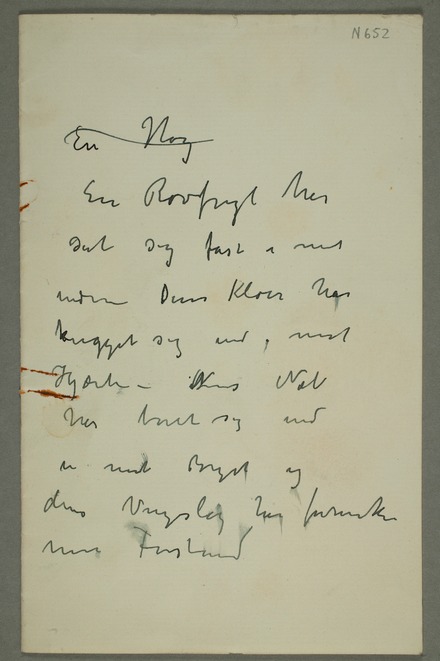 N 652
En Høg
En Rovfugl har
sat sig fast i mit
indre Dens Kløer har
hugget sig ind i mit
Hjærte – Dens Næb
har boret sig ind
i mit Bryst og
dens Vingeslag har formørket
min Forstand